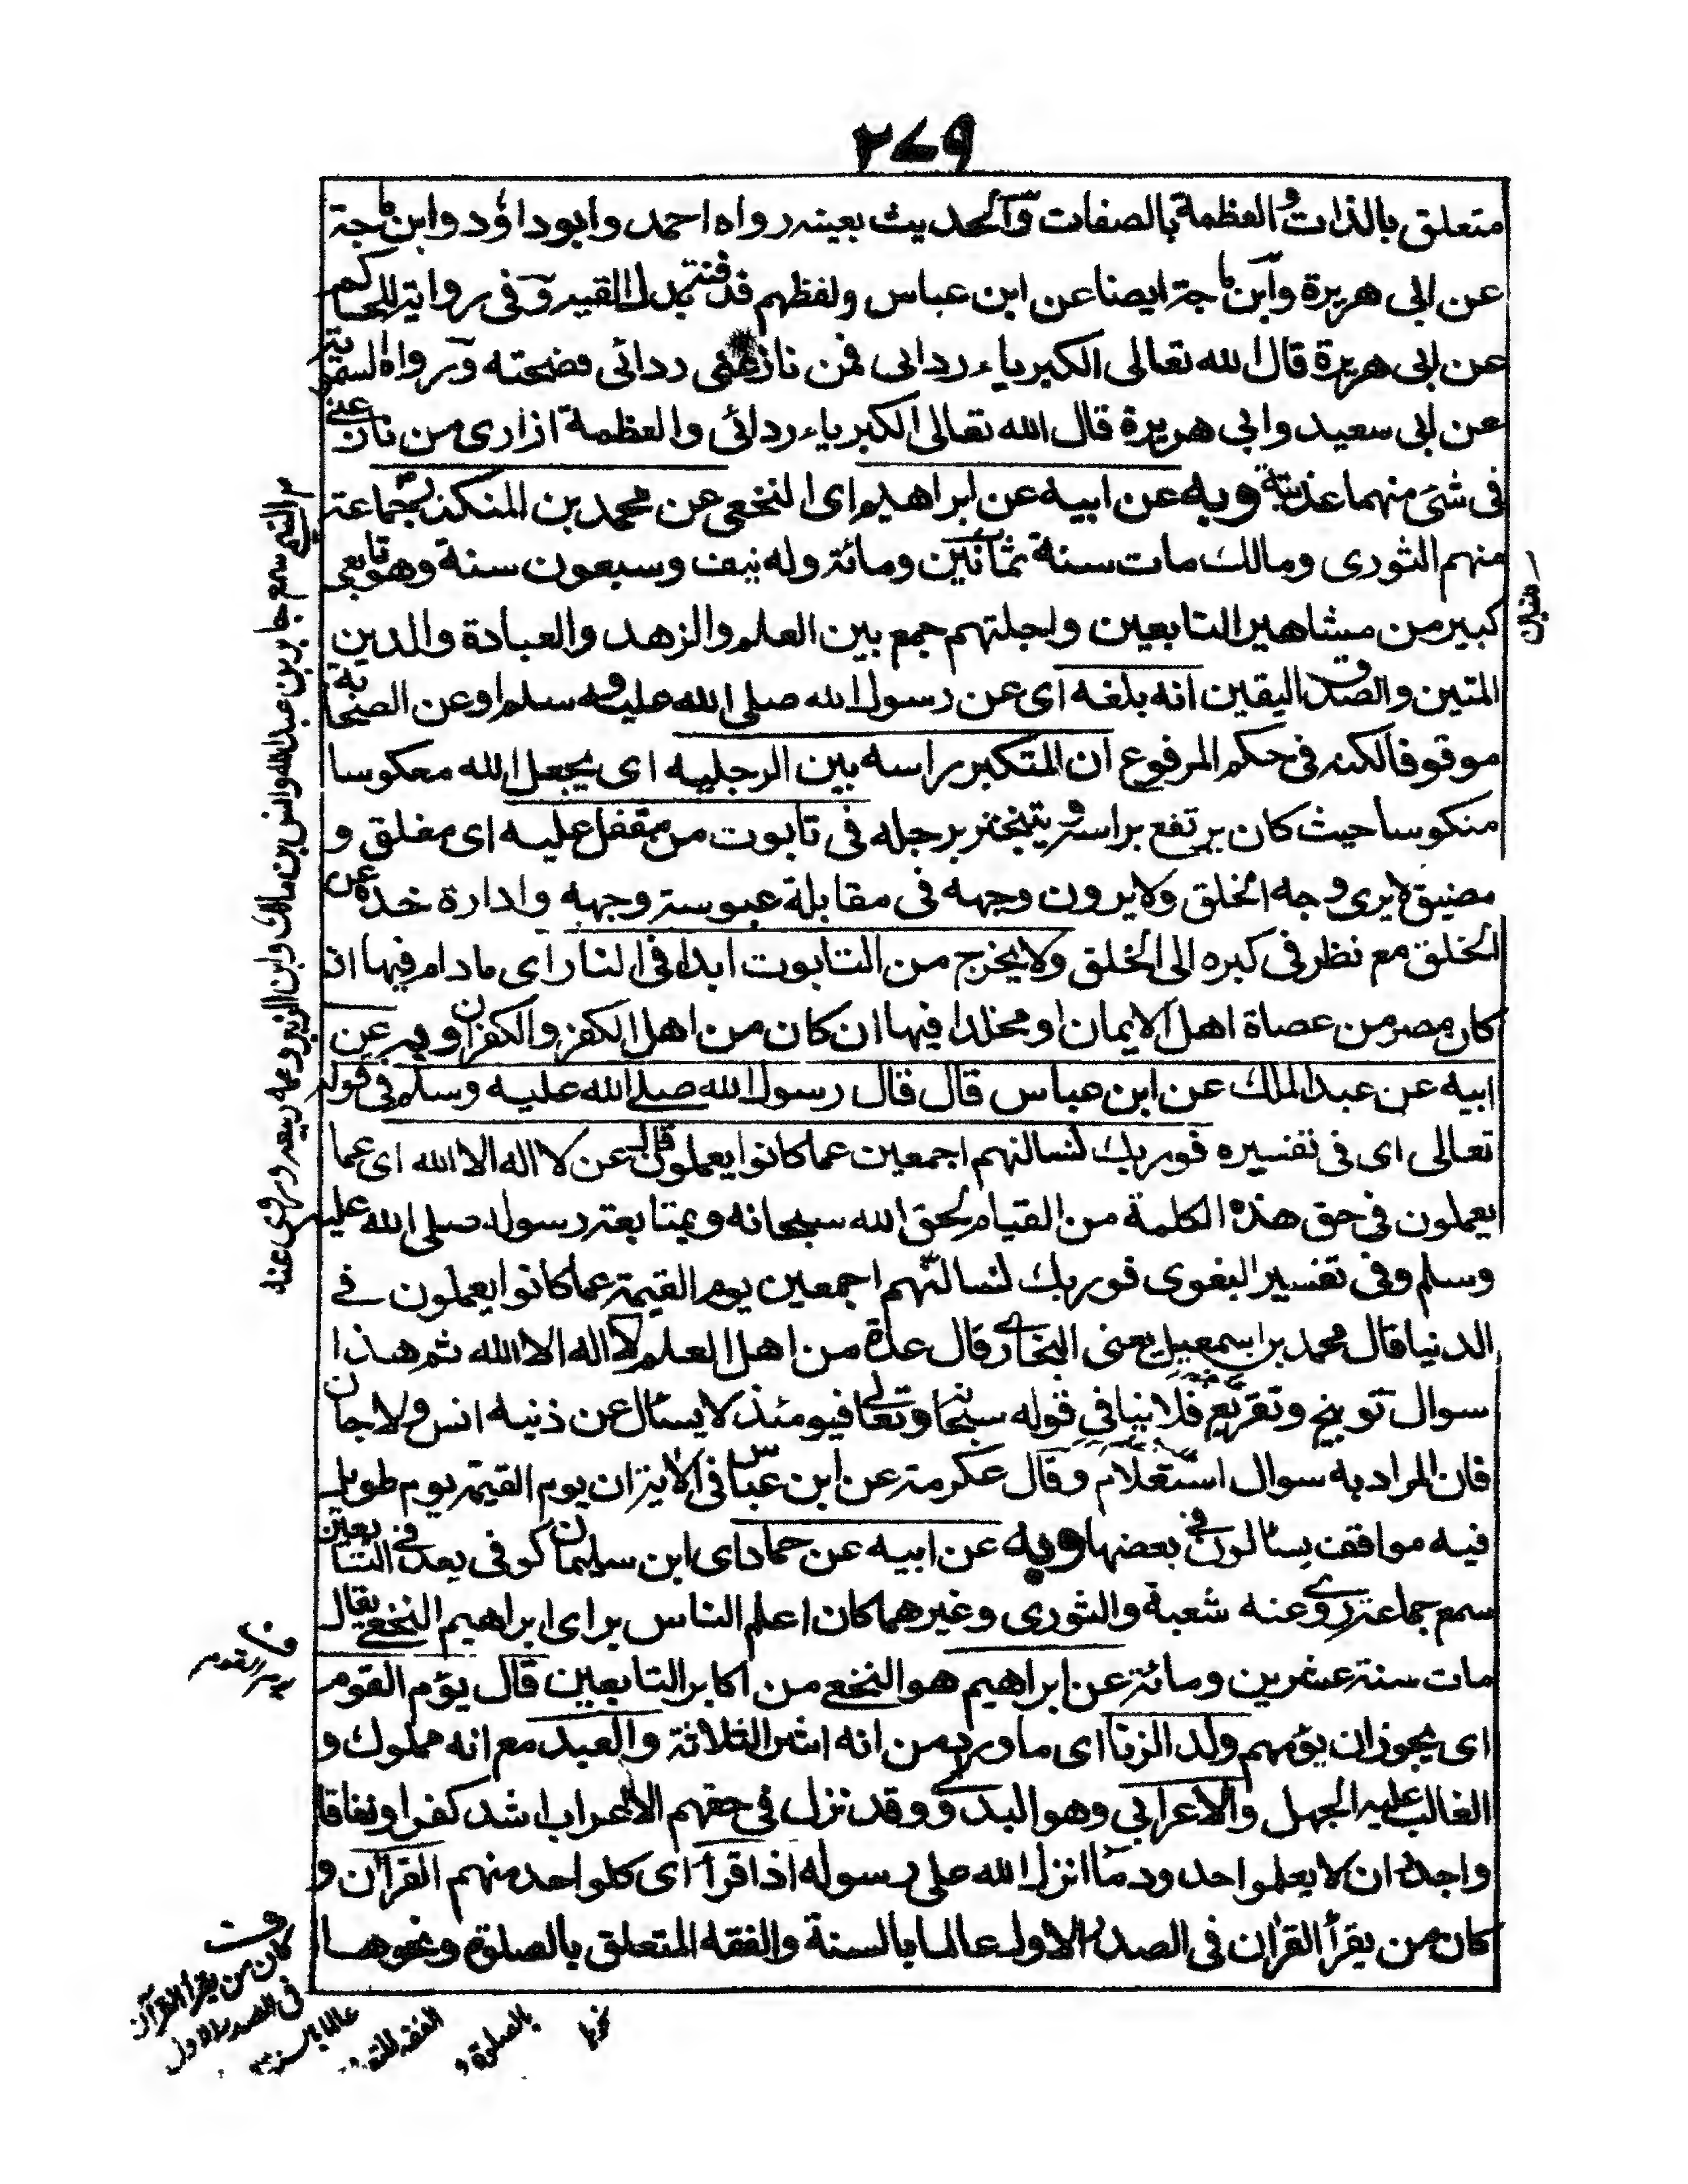 ٢٧٩
متعلق بالذات والعظمة بالصفات والحديث بعينه رواه احمد وابوداؤد وابن ماجة
عن ابى هريرة وابن ماجة ايضا عن ابن عباس ولفظهم قذفته بدل القيه وفى رواية للحاكم
عن ابى هريرة قال الله تعالى الكبرياء ردائى فمن نازعنى ردائى فضحته ورواه السمويه
عن ابى سعيد وابى هريرة قال الله تعالى الكبرياء ردائى والعظمة ازارى من نازعنى
فى شئ منهما عذبته وبه عن ابيه عن ابراهيم اى النخعى عن محمد بن المنكدر جماعة
منهم الثورى ومالك مات سنة ثمانين ومائة وله نيف وسبعون سنة وهو تابعى
كبير من مشاهير التابعين واجلتهم جمع بين العلم والزهد والعبادة والدين
المتين والصدق اليقين انه بلغه اى عن رسول الله صلى الله عليه وسلم او عن الصحابة
موقوفا لكنه فى حكم المرفوع ان المتكبر راسه بين الرجليه اى يجعل الله معكوسا
منكوسا حيث كان يرتفع براسه ويتبختر برجله فى تابوت من مقفل عليه اى مغلق و
مضيق لا يرى وجه الخلق ولا يرون وجهه فى مقابلة عبوسة وجهه وادارة خده عن
الخلق مع نظر فى كبره الى الخلق ولا يخرج من التابوت ابدا فى النار اى مادام فيها ان
كان مصر من عصاة اهل الايمان او مخلدا فيها ان كان من اهل الكفر والكفران وبه عن
ابيه عن عبد الملك عن ابن عباس قال قال رسول الله صلى الله عليه وسلم فى قوله
تعالى اى فى تفسيره فوربك لنسالنهم اجمعين عما كانوا يعملون قال عن لا اله الا الله اى عما
يعملون فى حق هذه الكلمة من القيام لحق الله سبحانه وبمتابعة رسوله صلى الله عليه
وسلم وفى تفسير البغوى فوربك لنسالنهم اجمعين يوم القيمة عما كانوا يعملون فى
الدنيا قال محمد بن اسمعيل يعنى البخارى قال عدة من اهل العلم لا اله الا الله ثم هذا
سوال توبيخ وتقريع فلا ينافى قوله سبحانه وتعالى فيومئذ لا يسئال عن ذنبه انس ولا جان
فان المراد به سوال استعلام وقال عكرمة عن ابن عباس فى الاية ان يوم القيمة يوم طويل
فيه مواقف يسئالون فى بعضها وبه عن ابيه عن حماد اى ابن سليمان كوفى يعد فى التابعين
سمع جماعة روى عنه شعبة والثورى وغيرهما كان اعلم الناس براى ابراهيم النخعى يقال
مات سنة عشرين ومائة عن ابراهيم هو النخعى من اكابر التابعين قال يؤم القوم
اى يجوز ان يؤمهم ولد الزنا اى ما ورد من انه اشر الثلاثة والعبد مع انه مملوك و
الغالب عليه الجهل والاعرابى وهو البدوى وقد نزل فى حقهم الاعراب اشد كفرا ونفاقا
واجدر ان لا يعلموا حدود ما انزل الله على رسوله اذا قرأ اى كل واحد منهم القران و
كان من يقرأ القران فى الصدر الاول عالما بالسنة والفقه المتعلق بالصلوة ونحوها
سمع جابر بن عبد الله وانس بن مالك وابن الزبير وعمه ربيعه وروى عنه
يؤم القوم
كان من يقرأ القرآن
فى الصدر الاول
عالما بالسنة
بالصلوة و